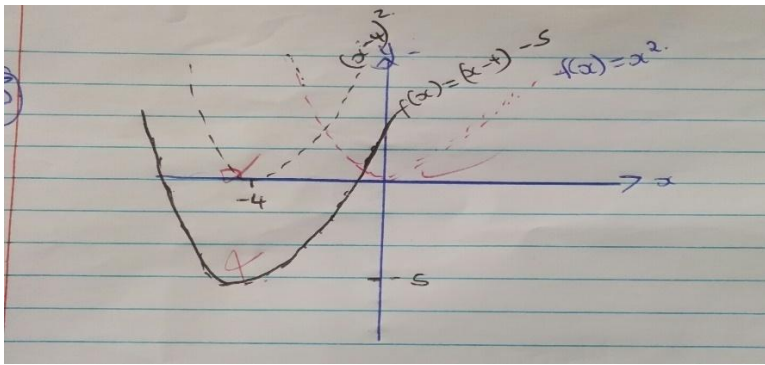 (x-4)²
f(x)=(x-4)-5
f(x)=x²
x
-4
-5